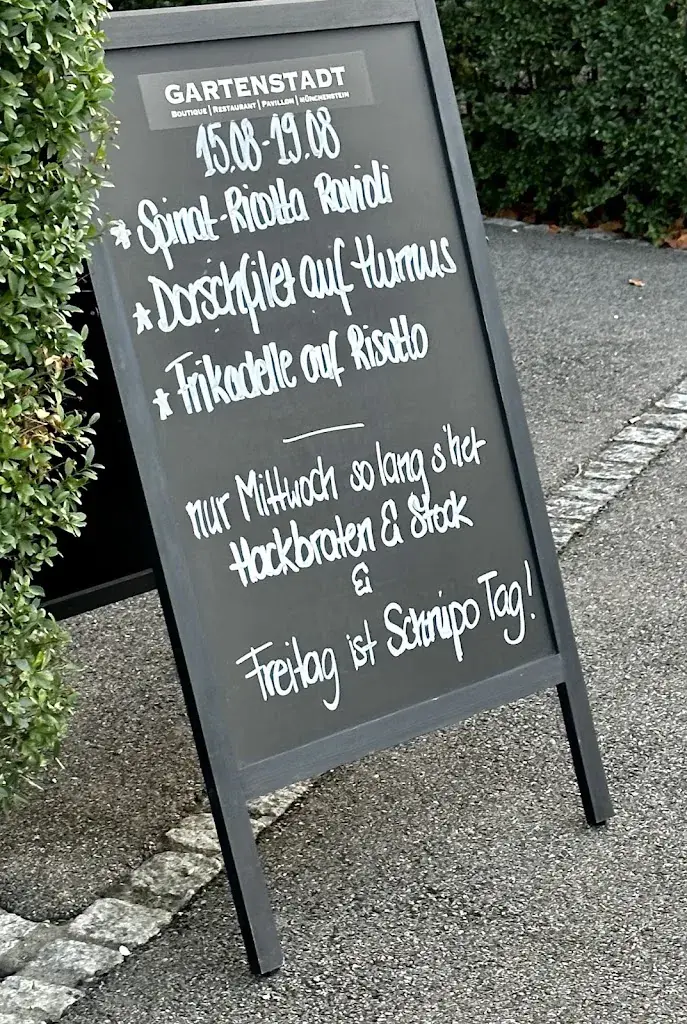 GARTENSTADT
BOUTIQUE | RESTAURANT | PAVILLON | MÜNCHENSTEIN
15.08-19.08
* Spinat-Ricotta Ravioli
* Dorschfilet auf Humus
* Frikadelle auf Risotto
nur Mittwoch so lang s'het
Hackbraten & Stock
&
Freitag ist Schnipo Tag!